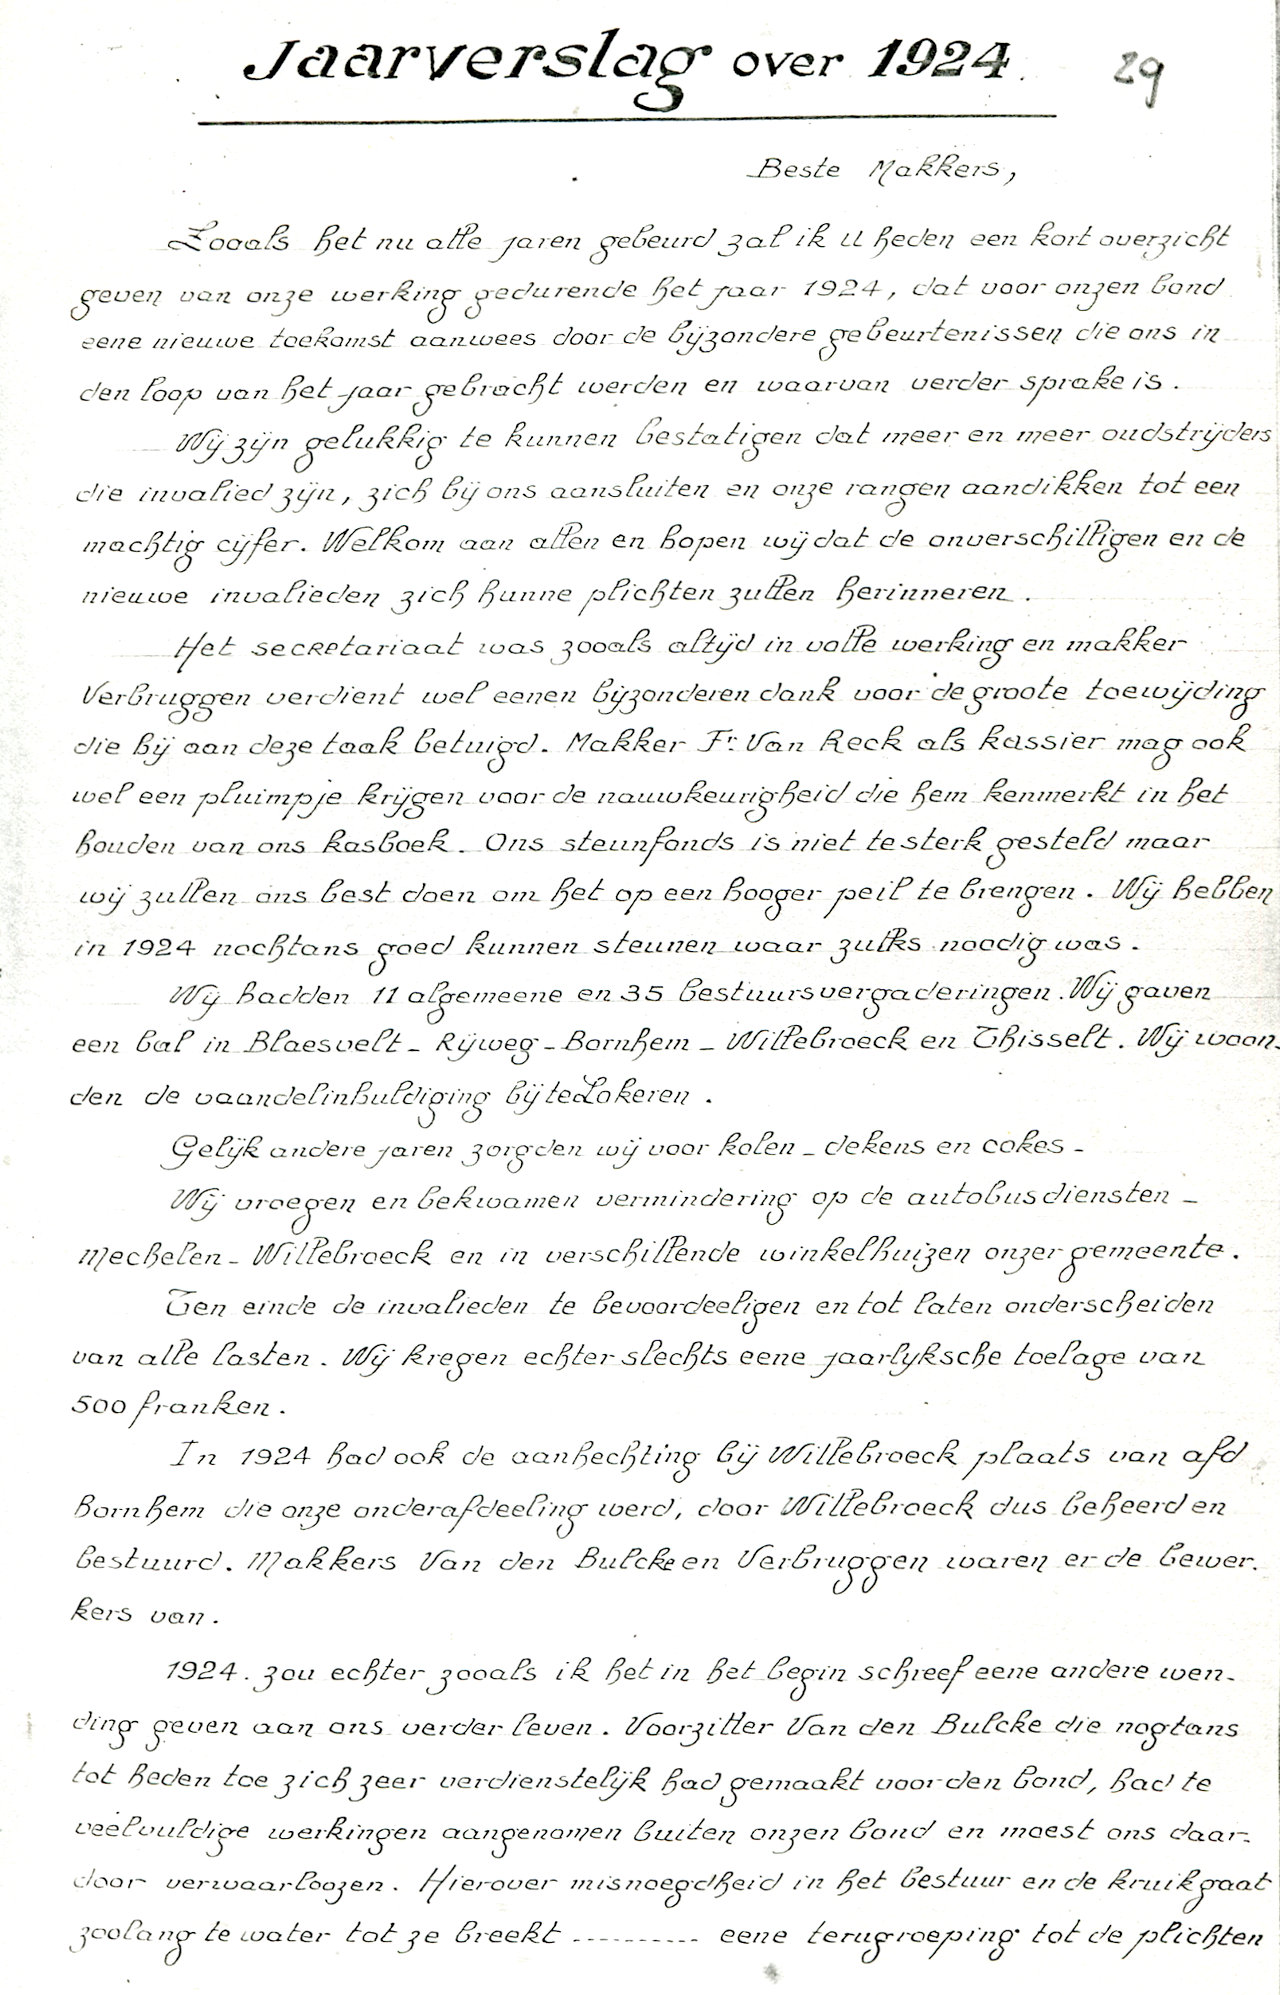 Jaarverslag over 1924. 29
Beste Makkers,
Zooals het nu alle jaren gebeurd zal ik U heden een kort overzicht
geven van onze werking gedurende het jaar 1924, dat voor onzen bond
eene nieuwe toekomst aanwees door de bijzondere gebeurtenissen die ons in
den loop van het jaar gebracht werden en waarvan verder sprake is.
Wij zijn gelukkig te kunnen bestatigen dat meer en meer oudstrijders
die invalied zijn, zich bij ons aansluiten en onze rangen aandikken tot een
machtig cijfer. Welkom aan allen en hopen wij dat de onverschilligen en de
nieuwe invalieden zich hunne plichten zullen herinneren.
Het secretariaat was zooals altijd in volle werking en makker
Verbruggen verdient wel eenen bijzonderen dank voor de groote toewijding
die hij aan deze taak betuigd. Makker Fr. Van Reck als kassier mag ook
wel een pluimpje krijgen voor de nauwkeurigheid die hem kenmerkt in het
houden van ons kasboek. Ons steunfonds is niet te sterk gesteld maar
wij zullen ons best doen om het op een hooger peil te brengen. Wij hebben
in 1924 nochtans goed kunnen steunen waar zulks noodig was.
Wij hadden 11 algemeene en 35 bestuursvergaderingen. Wij gaven
een bal in Blaesvelt - Rijweg - Bornhem - Willebroeck en Thisselt. Wij woon-
den de vaandelinhuldiging bij te Lokeren.
Gelijk andere jaren zorgden wij voor kolen - dekens en cokes -
Wij vroegen en bekwamen vermindering op de autobusdiensten -
Mechelen - Willebroeck en in verschillende winkelhuizen onzer gemeente.
Ten einde de invalieden te bevoordeeligen en tot laten onderscheiden
van alle lasten. Wij kregen echter slechts eene jaarlyksche toelage van
500 franken.
In 1924 had ook de aanhechting bij Willebroeck plaats van afd
Bornhem die onze onderafdeeling werd, door Willebroeck dus beheerd en
bestuurd. Makkers Van den Bulcke en Verbruggen waren er de bewer.
kers van.
1924. zou echter zooals ik het in het begin schreef eene andere wen-
ding geven aan ons verder leven. Voorzitter Van den Bulcke die nogtans
tot heden toe zich zeer verdienstelijk had gemaakt voor den bond, had te
veelvuldige werkingen aangenomen buiten onzen bond en moest ons daar-
door verwaarloozen. Hierover misnoegdheid in het bestuur en de kruik gaat
zoolang te water tot ze breekt .......... eene terugroeping tot de plichten